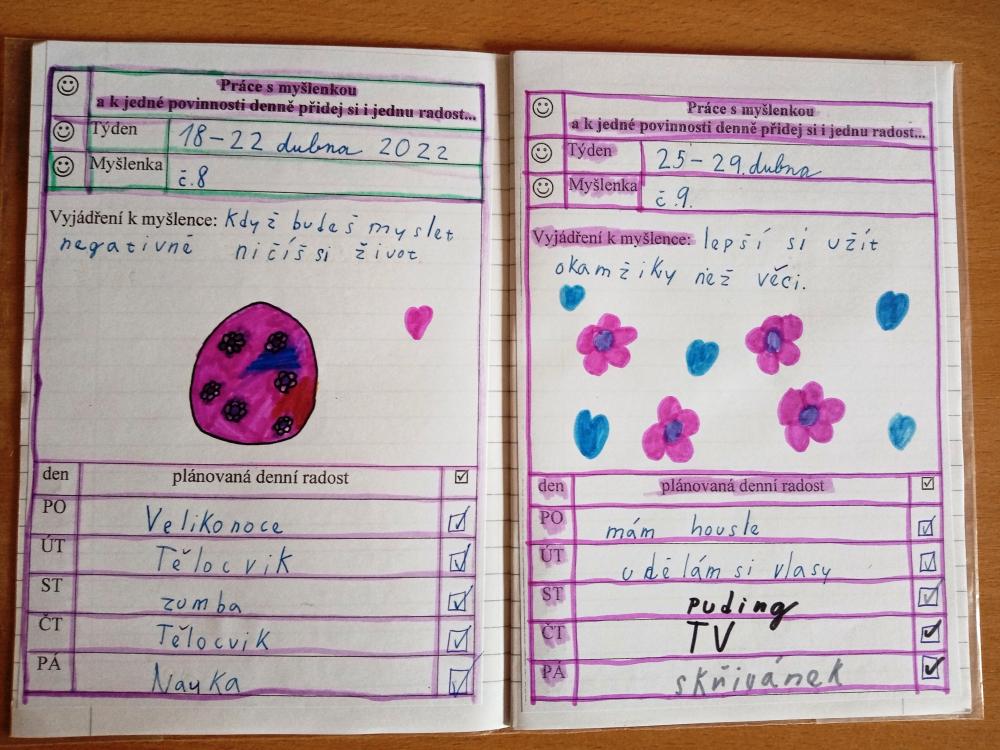 Práce s myšlenkou
a k jedné povinnosti denně přidej si i jednu radost...
Týden 18-22 dubna 2022
Myšlenka č.8
Vyjádření k myšlence: Když budeš myslet
negativně ničíš si život
den plánovaná denní radost
PO Velikonoce
ÚT Tělocvik
ST zumba
ČT Tělocvik
PÁ Nauka
Práce s myšlenkou
a k jedné povinnosti denně přidej si i jednu radost...
Týden 25-29.dubna
Myšlenka č.9.
Vyjádření k myšlence: lepší si užít
okamžiky než věci.
den plánovaná denní radost
PO mám housle
ÚT udělám si vlasy
ST puding
ČT TV
PÁ skřivánek